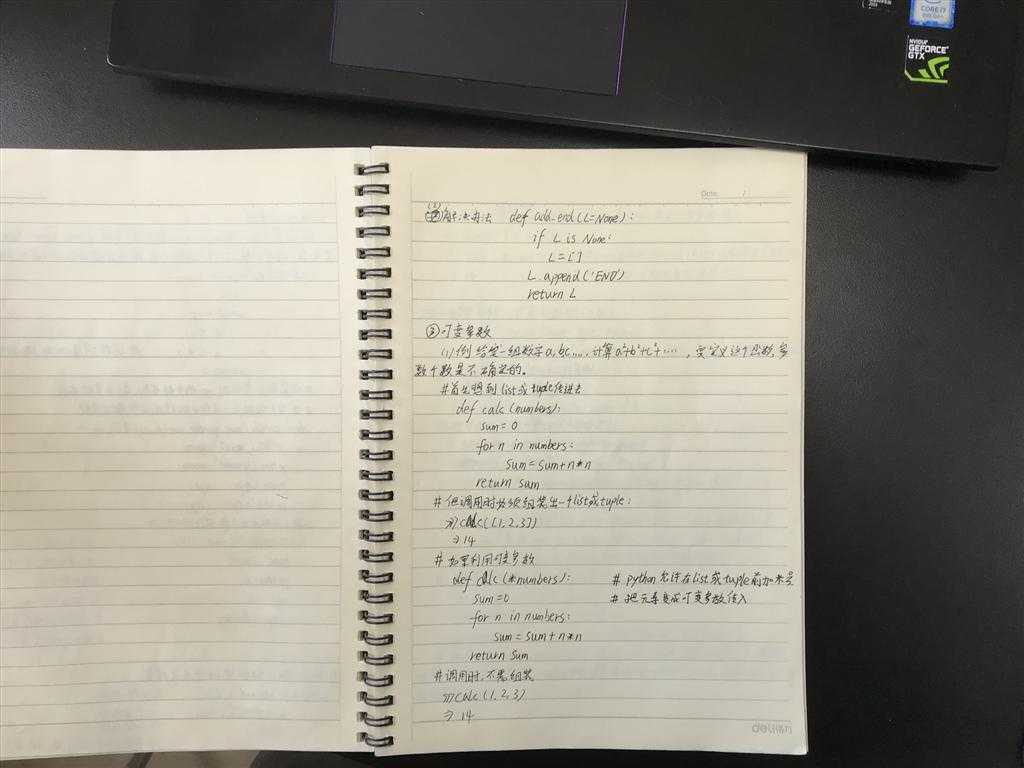 CORE i7
NVIDIA
GEFORCE
GTX
Date. /
解决办法 def add_end(L=None):
if L is None:
L=[]
L.append('END')
return L
③可变参数
(1)例 给定一组数字a,b,c……,计算a²+b²+c²+……,要定义这个函数,参
数个数是不确定的。
#首先想到list或tuple传进去
def calc(numbers):
sum=0
for n in numbers:
sum=sum+n*n
return sum
#但调用时必须组装出一个list或tuple:
>>>calc([1,2,3])
14
#如果利用可变参数
def calc(*numbers): #python允许在list或tuple前加*号
sum=0 #把元素变成可变参数传入
for n in numbers:
sum=sum+n*n
return sum
#调用时,不需组装
>>>calc(1,2,3)
14
deli